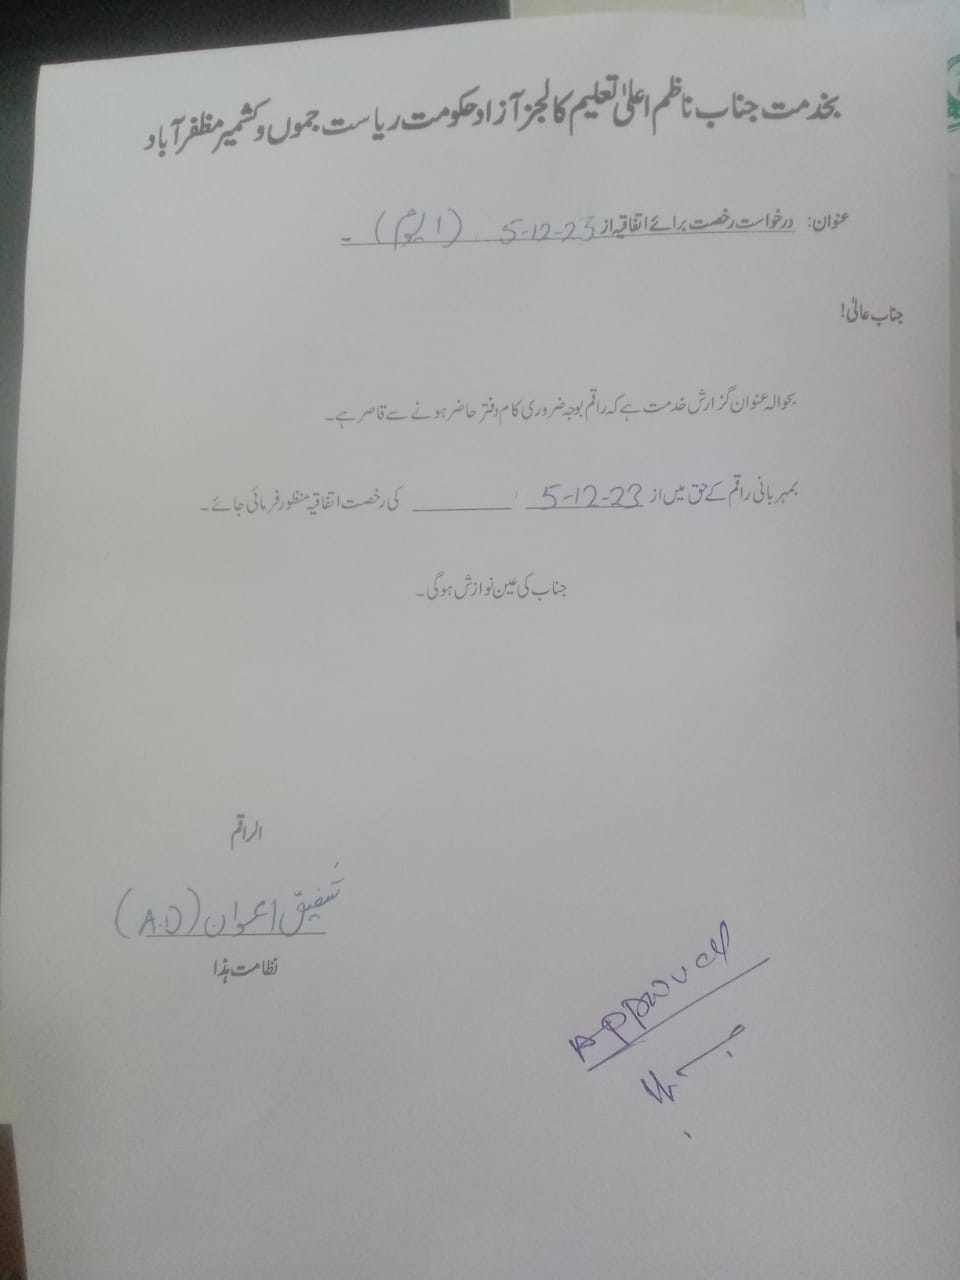 بخدمت جناب ناظم اعلیٰ تعلیم کالجز آزاد حکومت ریاست جموں و کشمیر مظفر آباد
عنوان: درخواست رخصت برائے اتفاقیہ از 5-12-23 (1 یوم)۔
جناب عالیٰ!
بحوالہ عنوان گزارش خدمت ہے کہ راقم بوجہ ضروری کام دفتر حاضر ہونے سے قاصر ہے۔
بمہربانی راقم کے حق میں از 5-12-23 ________ کی رخصت اتفاقیہ منظور فرمائی جائے۔
جناب کی عین نوازش ہوگی۔
الراقم
شفیق اعوان (A.D)
نظامت ہذا
Approved